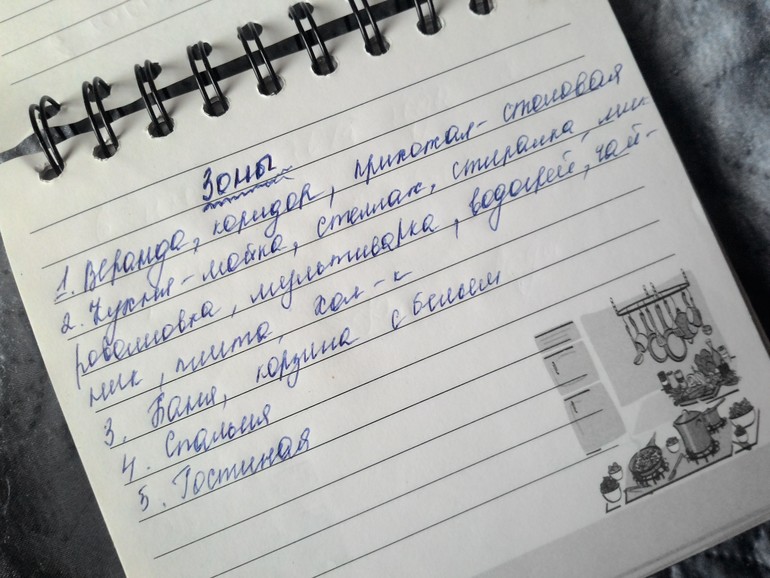 Зоны
1. Веранда, коридор, прихожая - столовая
2. Кухня - мойка, стеллаж, стиралка, мик-
роволновка, мультиварка, водогрей, чай-
ник, плита, хол-к
3. Баня, корзина с бельем
4. Спальня
5. Гостиная